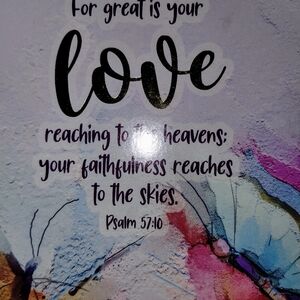 For great is your
love
reaching to the heavens;
your faithfulness reaches
to the skies.
Psalm 57:10